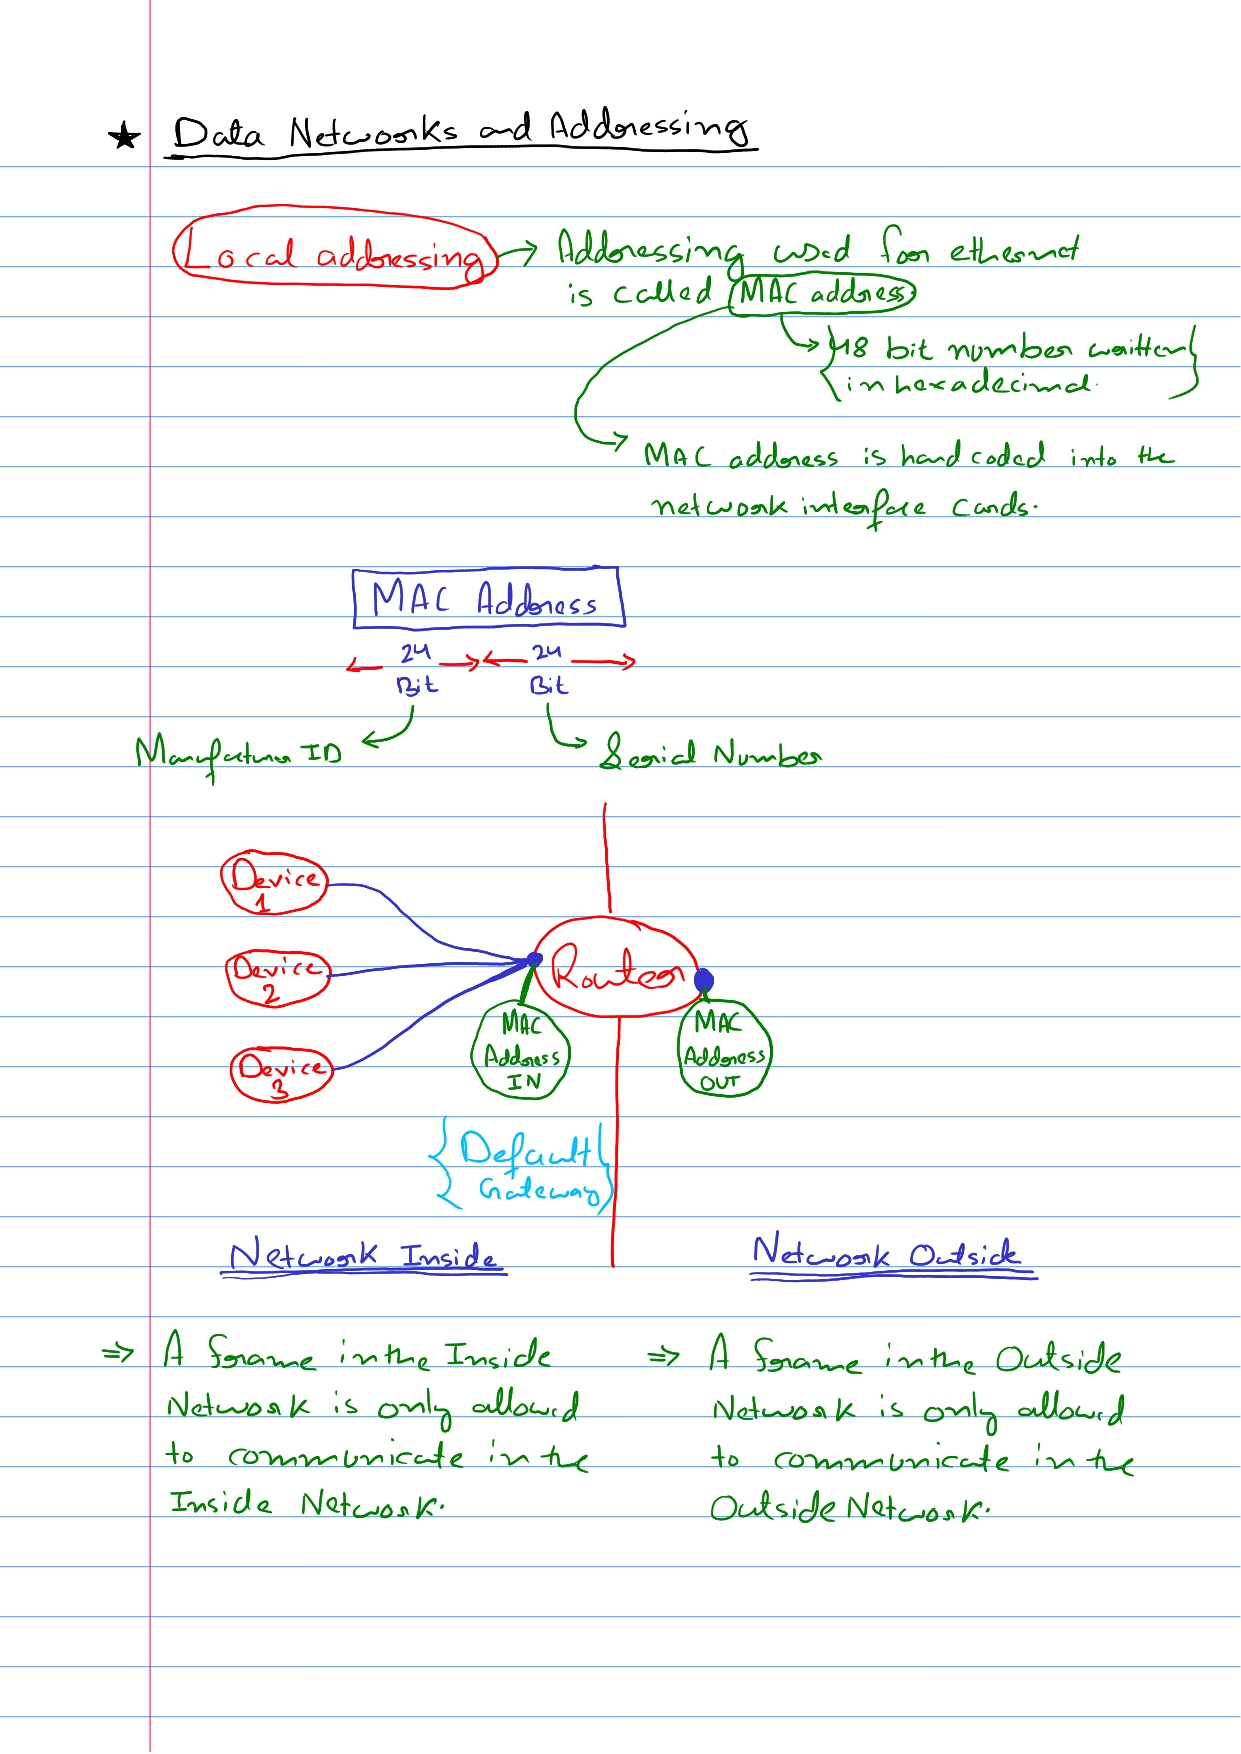 ★ Data Networks and Addressing
Local addressing → Addressing used for ethernet
is called MAC address
→ {48 bit number written
in hexadecimal.}
→ MAC address is hard coded into the
network interface cards.
MAC Address
24 Bit
24 Bit
Manufacturer ID
Serial Number
Device 1
Device 2
Device 3
Router
MAC
Address
IN
MAC
Address
OUT
{Default
Gateway}
Network Inside
Network Outside
⇒ A frame in the Inside
Network is only allowed
to communicate in the
Inside Network.
⇒ A frame in the Outside
Network is only allowed
to communicate in the
Outside Network.